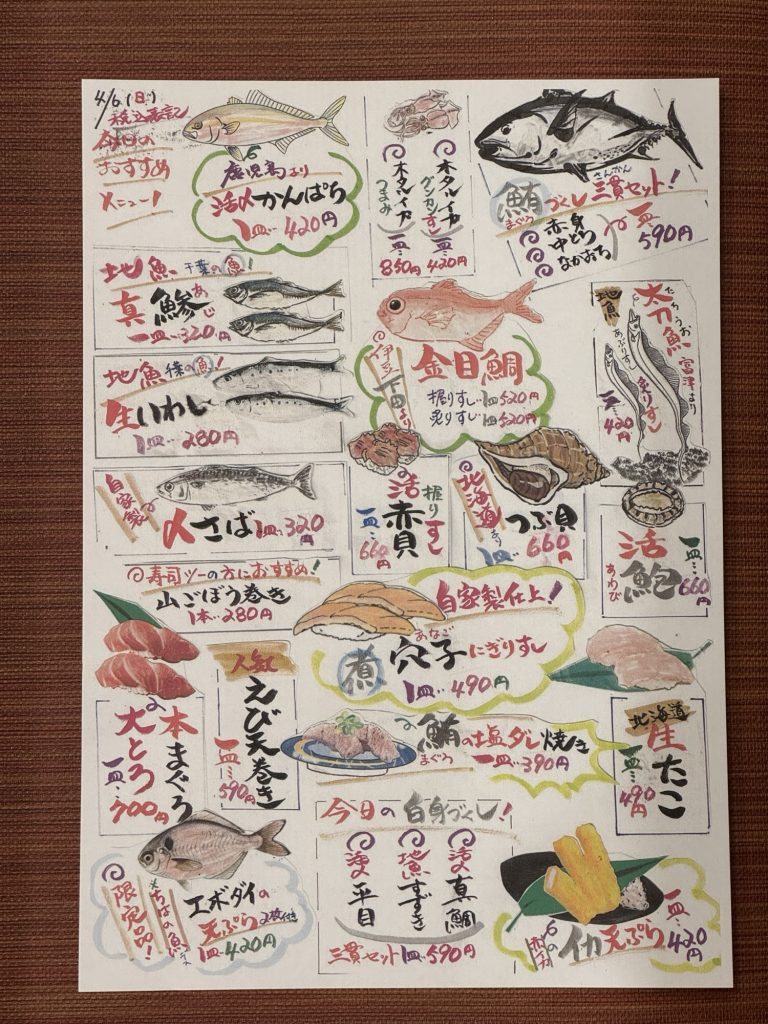 4/6(日)
税込表記
本日の
おすすめ
メニュー!
鹿児島より
活〆かんぱち
1皿…420円
ホタルイカ
つまみ
一皿…850円
ホタルイカ
グンカンすし
一皿…420円
鮪づくし三貫セット!
まぐろ
さんかん
赤身
中とろ
なかおち
一皿…590円
地魚 千葉の魚!
真鯵
あじ
一皿…320円
地魚 千葉の魚!
生いわし
1皿…280円
伊豆下田より
金目鯛
握りすし…1皿520円
炙りすし…1皿520円
地魚
太刀魚
たちうお
富津より
炙りすし
あぶりすし
一皿…420円
自家製
〆さば 1皿…320円
活赤貝
握りすし
一皿…660円
北海道より
つぶ貝
1皿…660円
活鮑
あわび
一皿…660円
寿司ツーの方におすすめ!
山ごぼう巻き
1本…280円
自家製仕上!
煮穴子にぎりすし
あなご
1皿…490円
本まぐろ
大とろ
一皿…700円
人気
えび天巻き
一皿…590円
鮪の塩ダレ焼き
まぐろ
一皿…390円
北海道
生たこ
一皿…490円
限定品!
ちばの魚
エボダイの
天ぷら 2枚付き
1皿…420円
今日の白身づくし!
活〆真鯛
地魚すずき
活〆平目
三貫セット1皿…590円
イカ天ぷら
一皿…420円